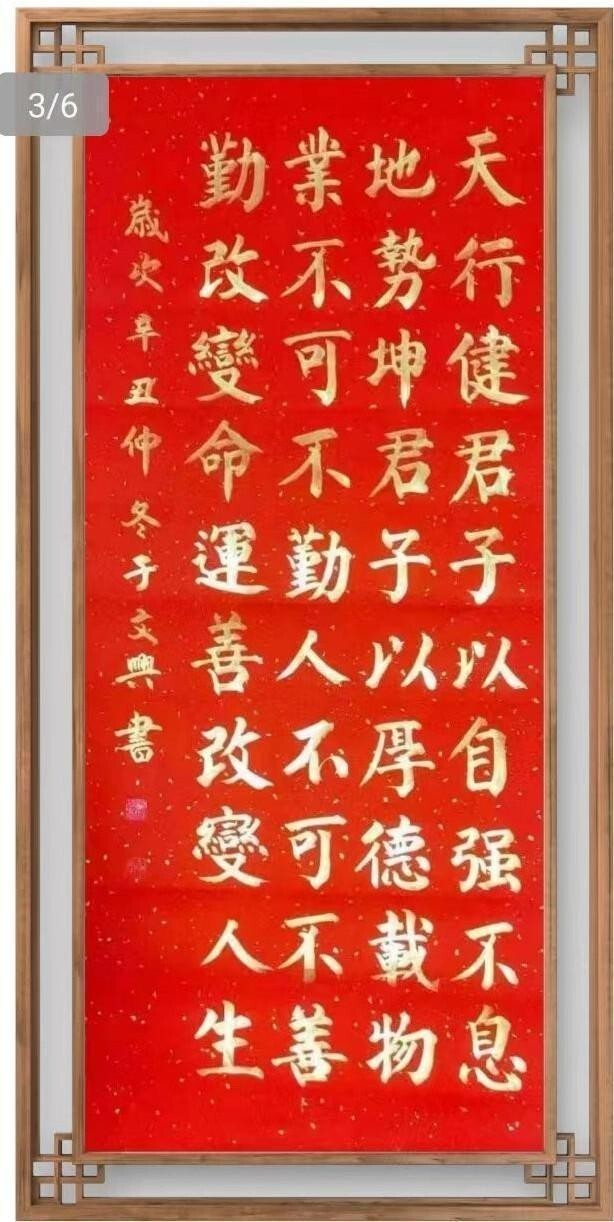 3/6
天行健君子以自强不息
地勢坤君子以厚德載物
業不可不勤人不可不善
勤改變命運善改變人生
歲次辛丑仲冬于文興書